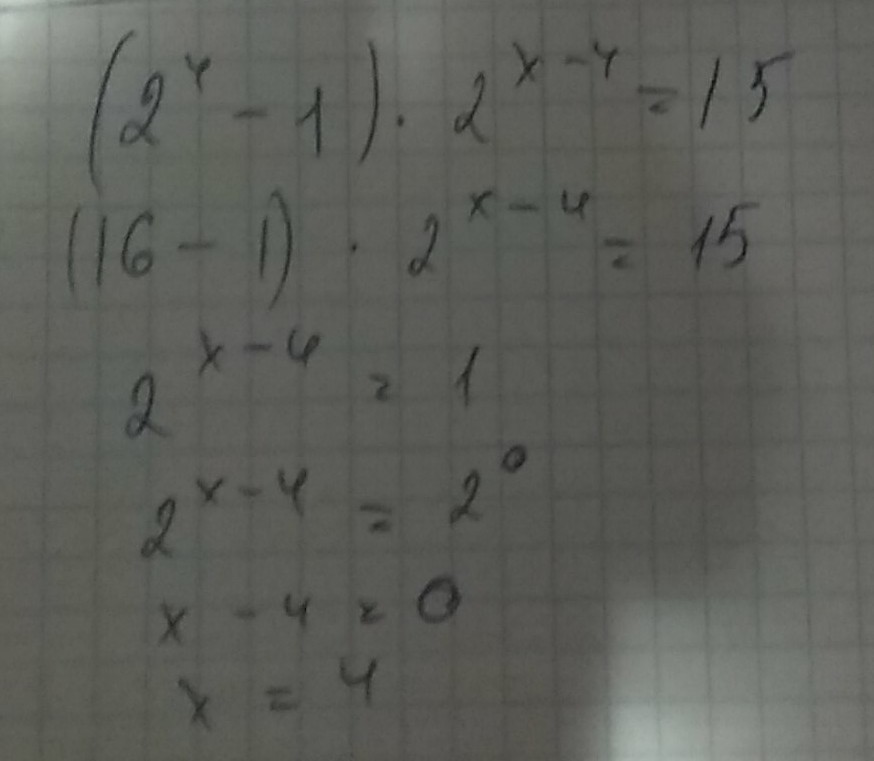 (2⁴ - 1) · 2ˣ⁻⁴ = 15
(16 - 1) · 2ˣ⁻⁴ = 15
2ˣ⁻⁴ = 1
2ˣ⁻⁴ = 2⁰
x - 4 = 0
x = 4